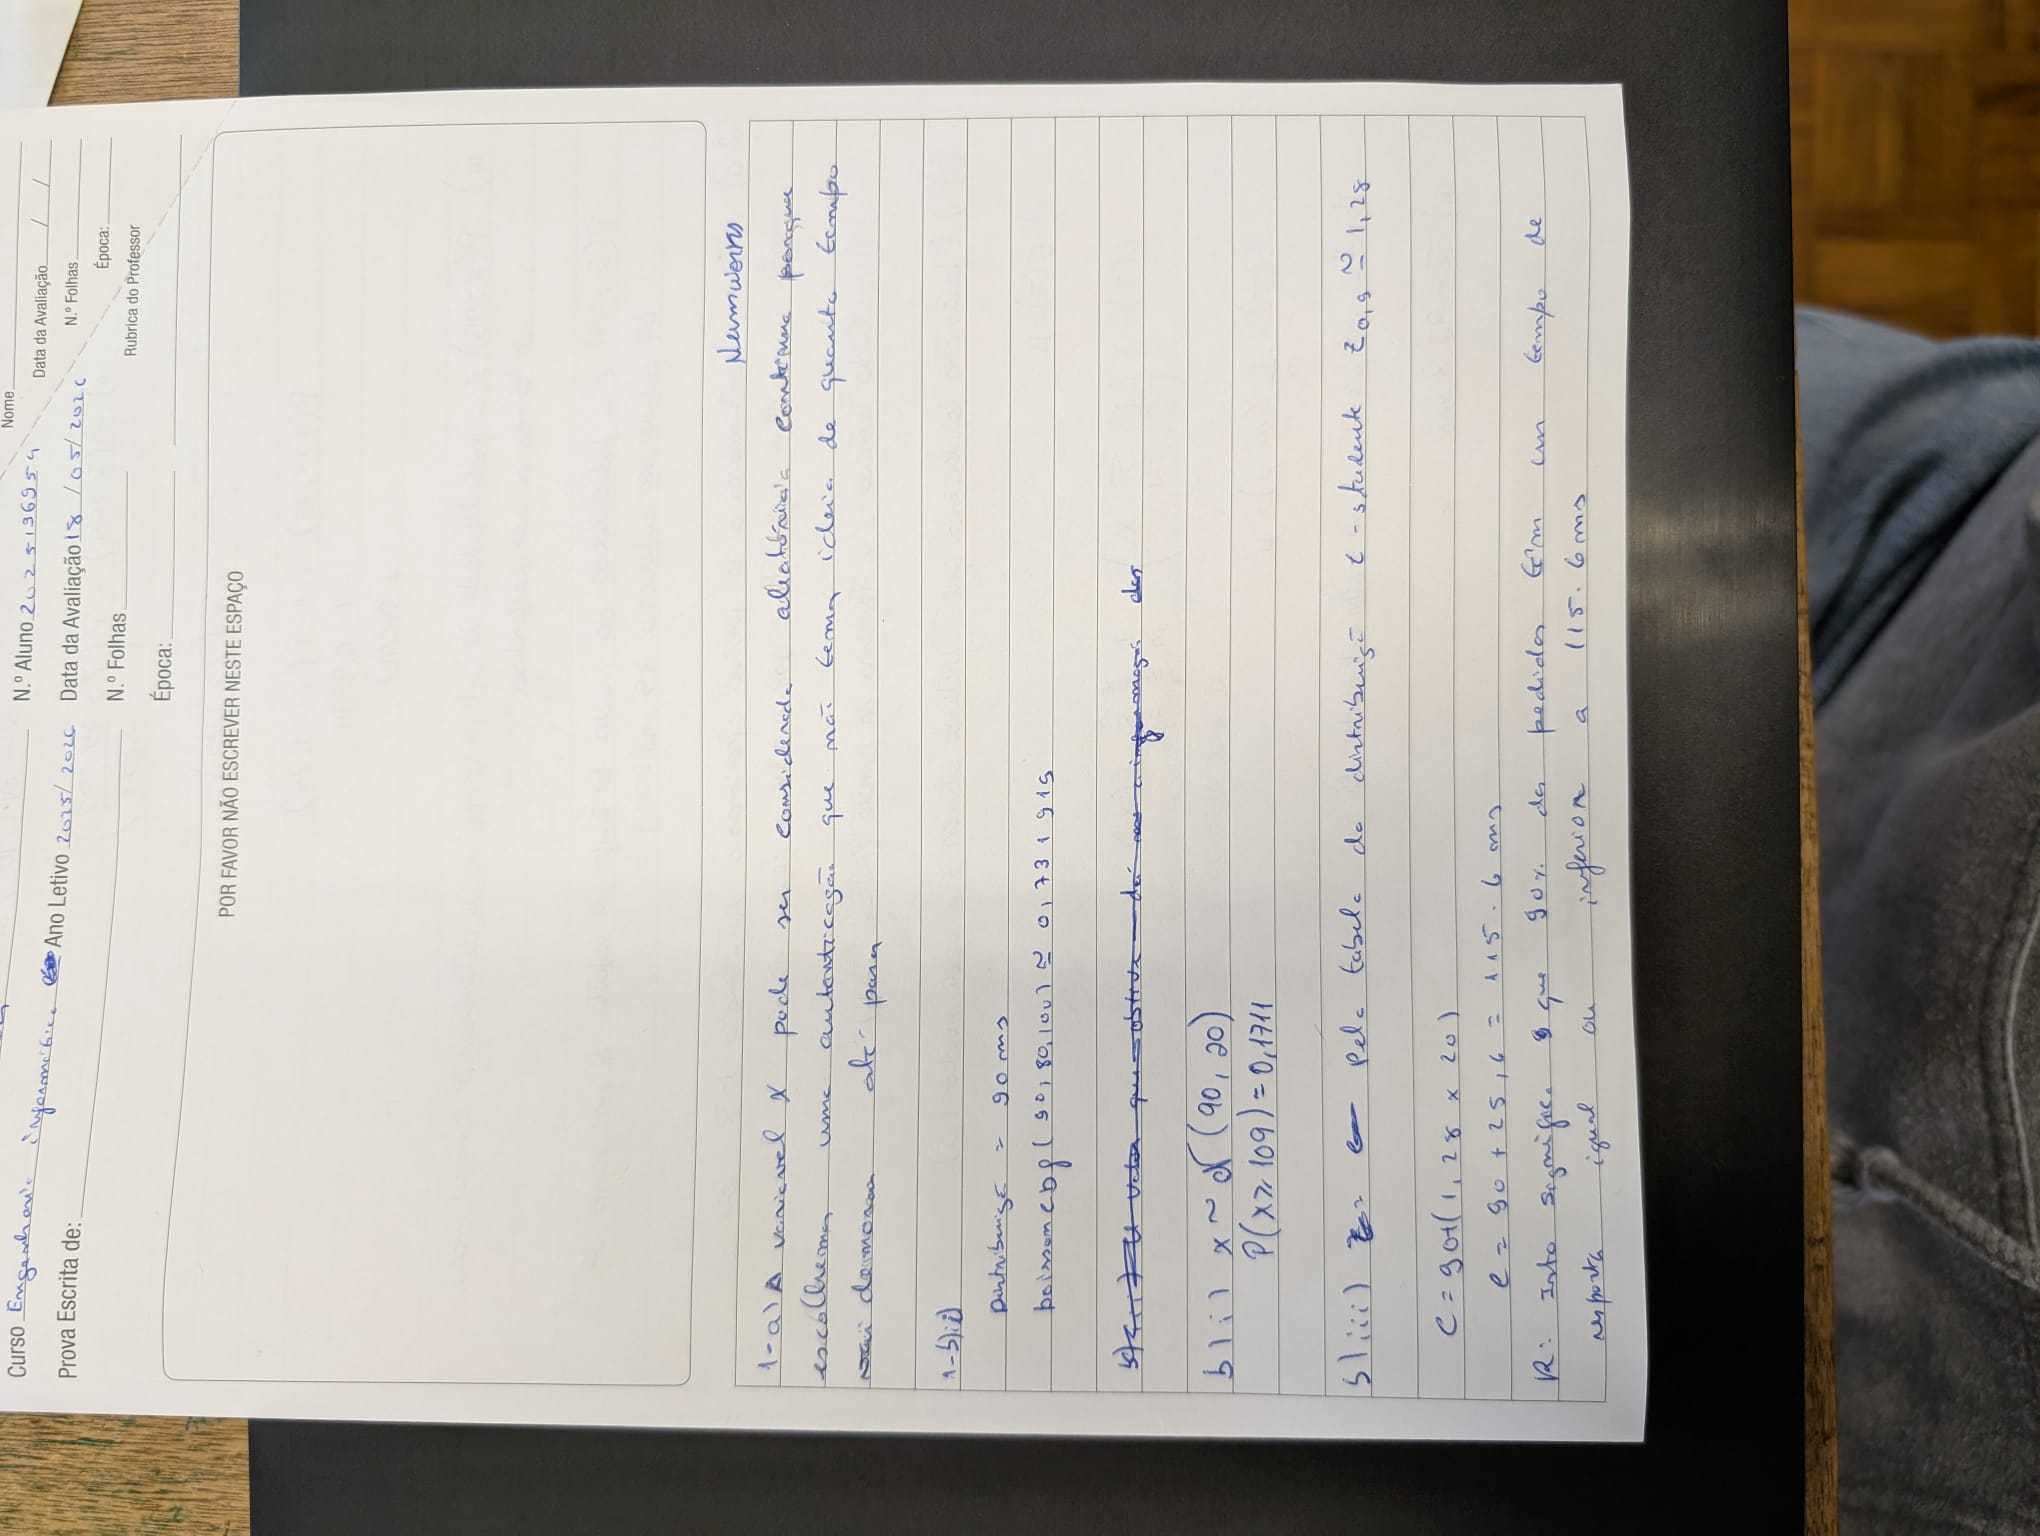 Curso Engenharia informática Ano Letivo 2025/2026
N.º Aluno 2025136954
Nome
Prova Escrita de:
Data da Avaliação 18/05/2026
Data da Avaliação / /
N.º Folhas
N.º Folhas
Época:
Época:
Rubrica do Professor
POR FAVOR NÃO ESCREVER NESTE ESPAÇO
1-a) A variavel X pode ser considerada aleatória continua porque
escolhemos uma autenticação que não temos ideia de quanto tempo
demorar até
1-b)ii)
= 90 ms
poissoncdf(90,80,100) ≅ 0,731919
b)ii) X ~ N(90,20)
P(X≥109)=0,1711
b)iii) Pela tabela da distribuição t-student z0,9 ≅ 1,28
C = 90+(1,28 x 20)
c = 90 + 25,6 = 115.6 ms
R: Isto significa que 90% dos pedidos têm um tempo de
resposta igual ou inferior a 115.6 ms